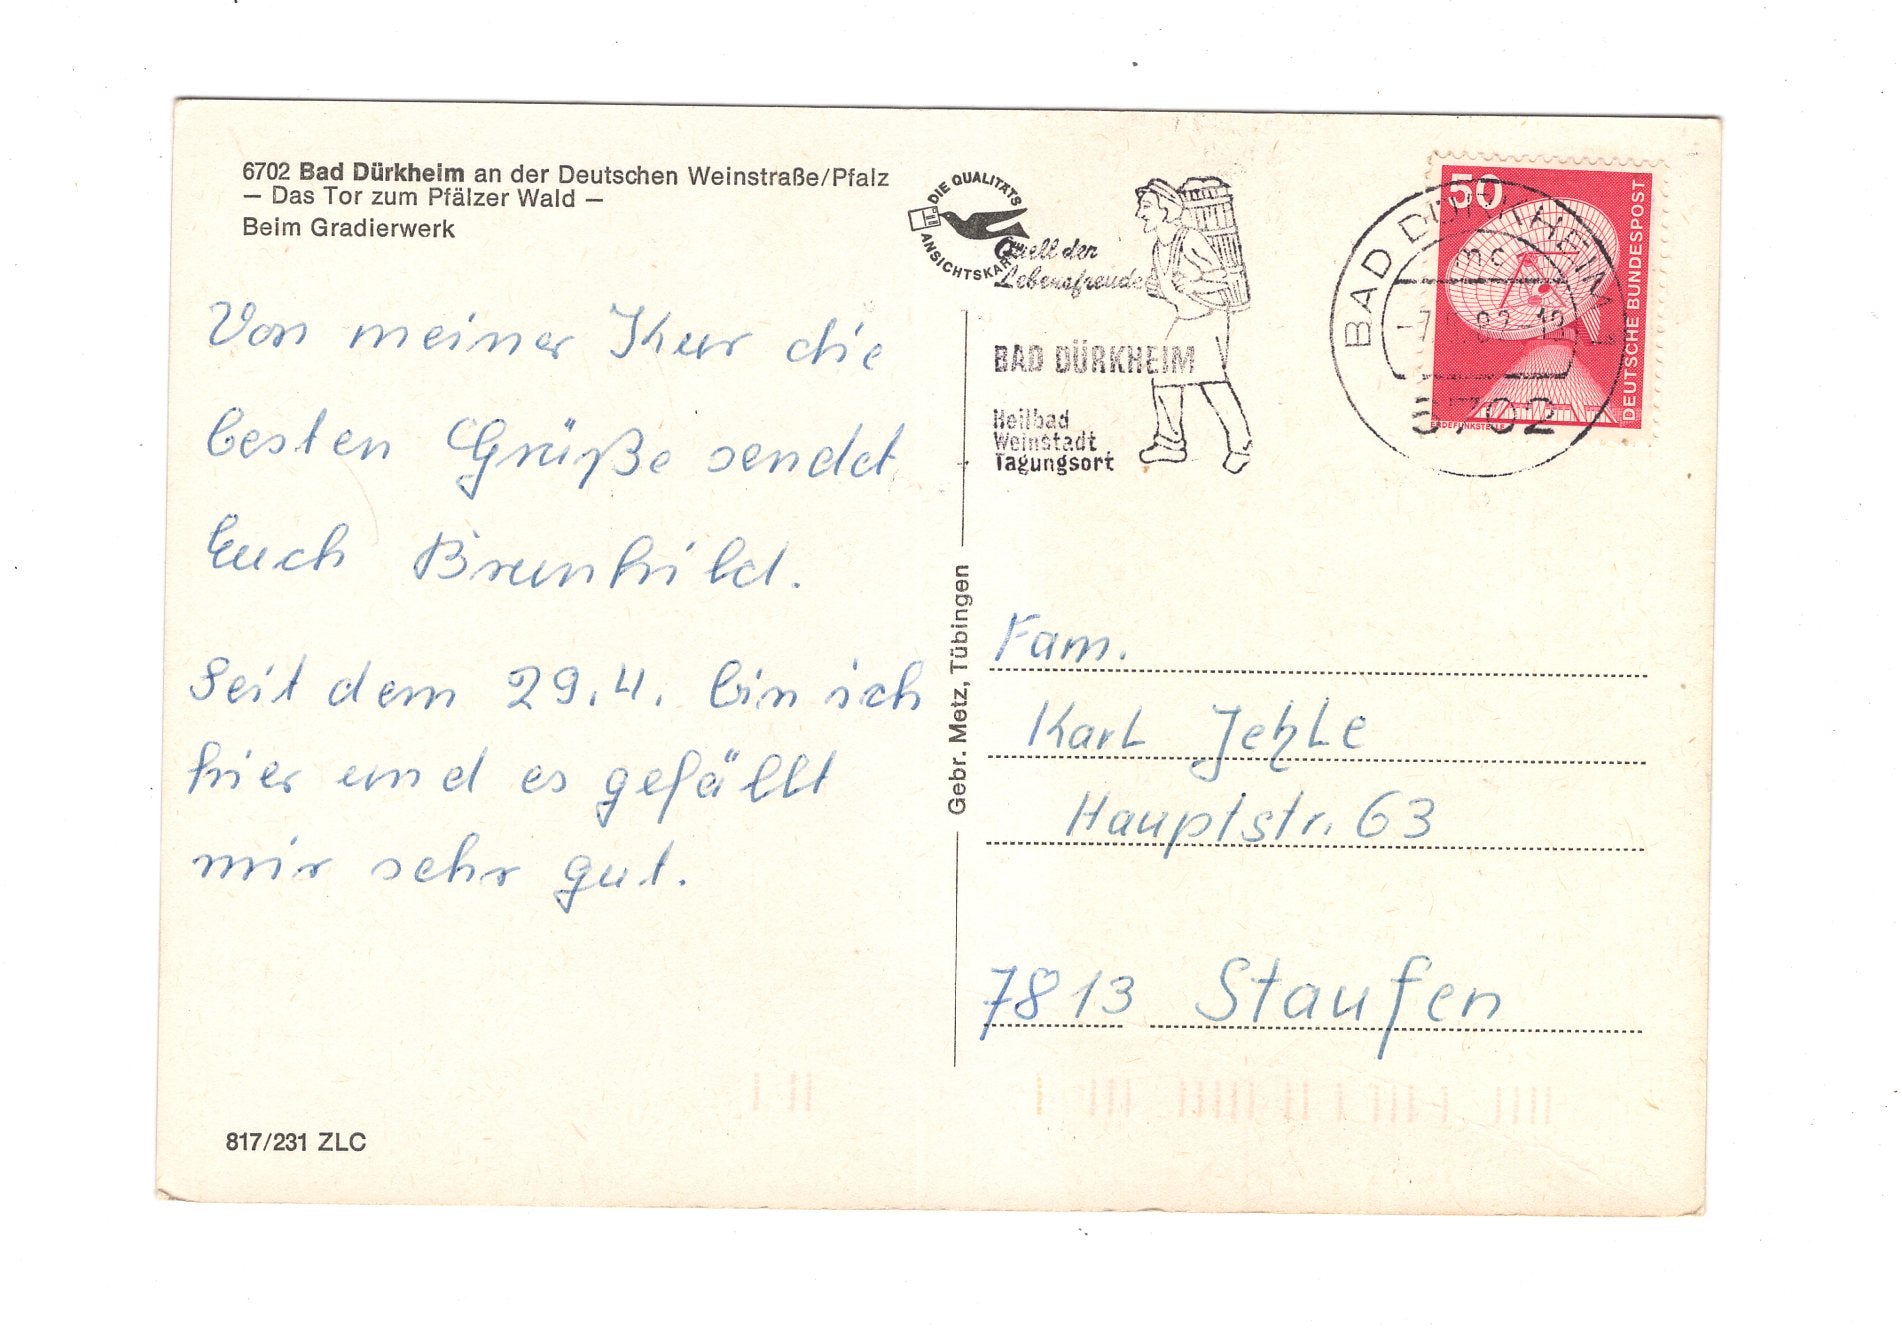 6702 Bad Dürkheim an der Deutschen Weinstraße/Pfalz
— Das Tor zum Pfälzer Wald —
Beim Gradierwerk
Von meiner Kur die
besten Grüße sendet
Euch Brunhild.
Seit dem 29.4. bin ich
hier und es gefällt
mir sehr gut.
817/231 ZLC
Gebr. Metz, Tübingen
DIE QUALITÄTS
ANSICHTSKARTE
Quell der
Lebensfreude
BAD DÜRKHEIM
Heilbad
Weinstadt
Tagungsort
BAD DÜRKHEIM 1
mc
6702
50
DEUTSCHE BUNDESPOST
ERDEFUNKSTELLE
Fam.
Karl Jehle
Hauptstr. 63
7813 Staufen